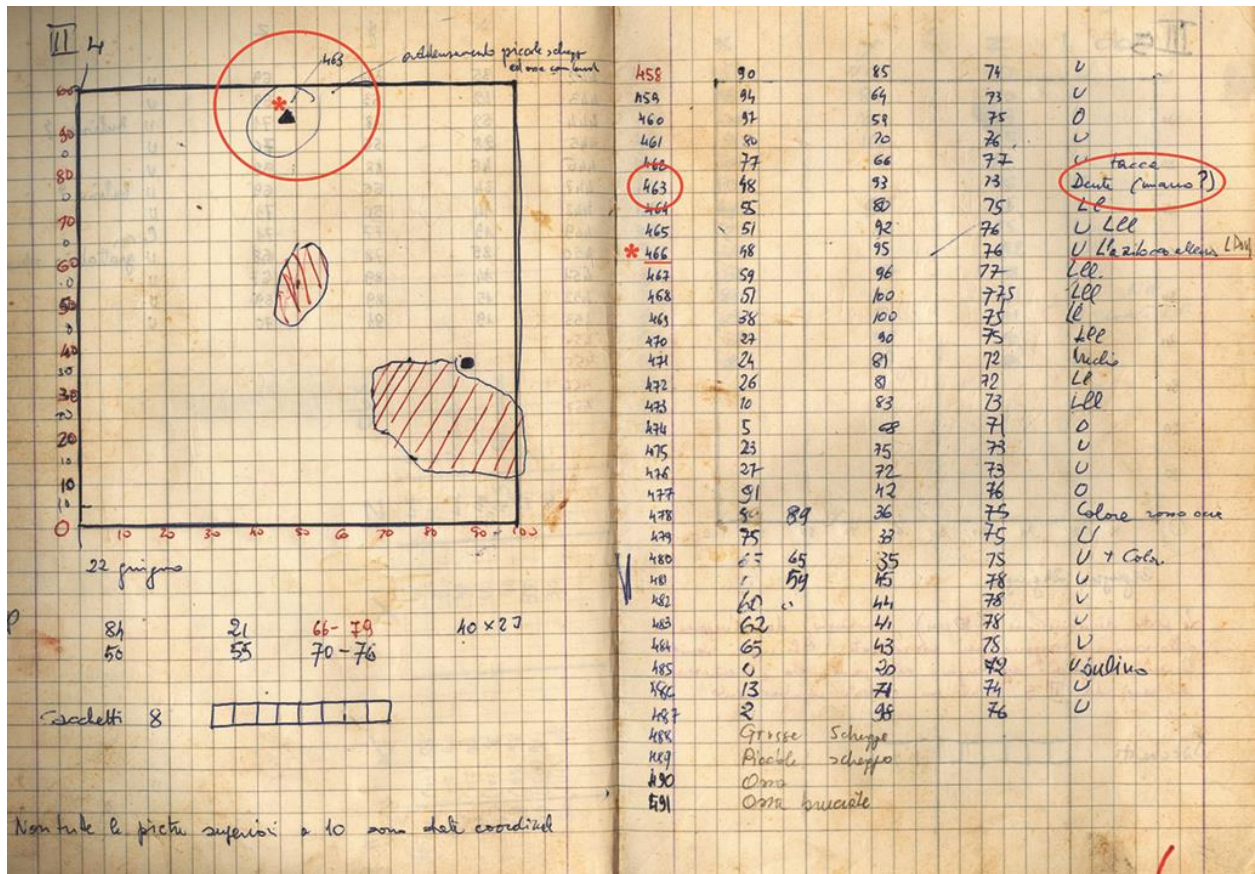 II 4
463
addensamento piccole schegge
ed ossa comb
60
90
80
70
60
50
40
30
20
10
0 10 20 30 40 50 60 70 80 90 100
22 giugno
84 21 66-79 40 x 2
50 55 70-76
Sacchetti 8
Non tutte le pietre superiori a 10 sono state coordinate
458 90 85 74 U
459 94 64 73 U
460 92 59 75 O
461 80 70 76 U
462 77 66 77 U
tacca
463 48 93 73 Dente (umano?)
464 55 80 75 LC
465 51 92 76 U Lee
* 466 48 95 76 U
467 59 96 77 Lee.
468 51 100 775 Lee
469 38 100 75 Le
470 27 90 75 Lee
471 24 81 72
472 26 81 72 Le
473 10 83 73 Lee
474 5 68 71 O
475 23 75 73 U
476 27 72 73 U
477 91 42 76 O
478 89 36 75 Colore rosso ocra
479 75 33 75 U
480 65 35 75 U + Color.
481 54 45 78 U
482 60 44 78 U
483 62 41 78 U
484 65 43 78 U
485 0 20 72 U bulino
486 13 71 74 U
487 2 98 76 U
488 Grosse Schegge
489 Piccole schegge
490 Ossa
591 Ossa bruciate